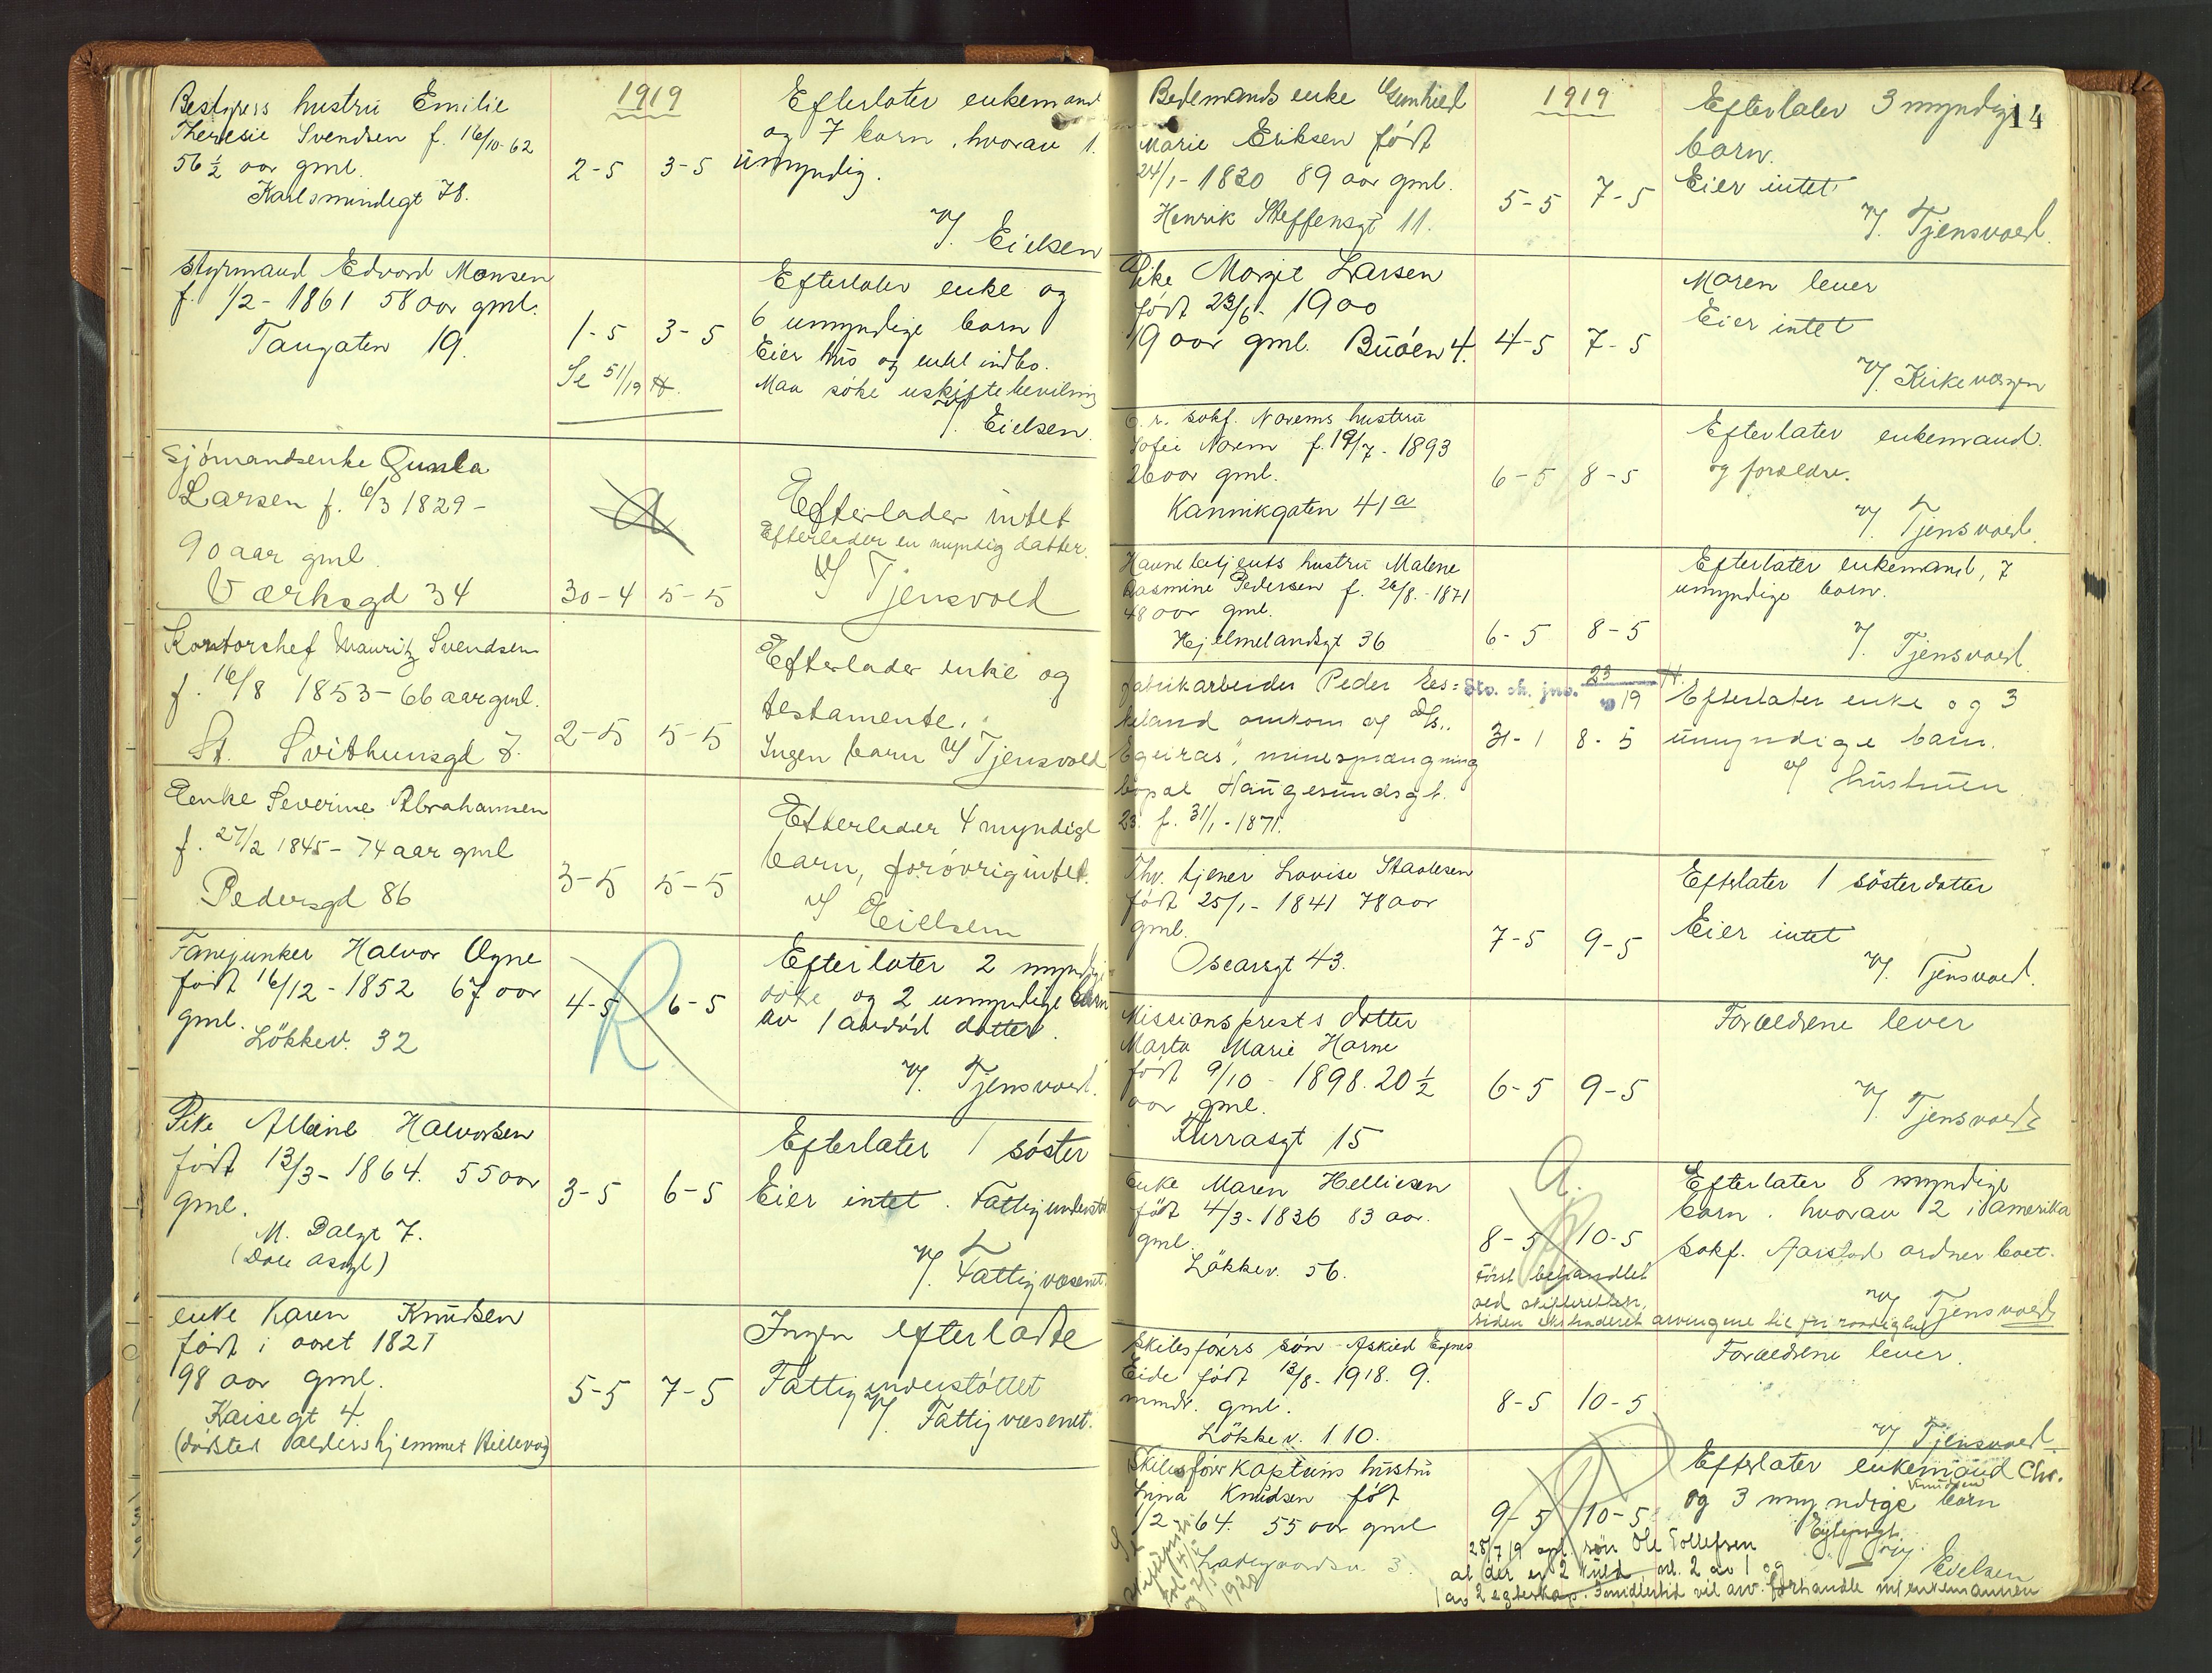 1919
Bestyrers hustru Emilie
Theresie Svendsen f. 16/10-62
56 1/2 aar gml.
Karlsmindegt 78.
2-5 3-5
Efterlater enkemand
og 7 barn, hvorav 1.
umyndig.
v/. Eielsen
Styrmand Edvard Monsen
f. 1/2-1861 58 aar gml.
Taugaten 19.
1-5 3-5
Se 51/19 H.
Efterlater enke og
6 umyndige barn
Eier hus og endel indbo.
Maa søke uskiftebevilning
v/. Eielsen.
Sjømandsenke Gunla
Larsen f. 6/3 1829-
90 aar gml.
Værksgd 34
a
30-4 5-5
Efterlader intet
Efterlader en myndig datter.
v/ Tjensvold
Kontorchef Mauritz Svendsen
f. 16/8 1853-66 aar gml.
St. Svithunsgd 7.
2-5 5-5
Efterlader enke og
testamente.
Ingen barn v/ Tjensvold
Enke Severine Abrahamsen
f. 27/2 1845-74 aar gml
Pedersgd 86
3-5 5-5
Efterlader 4 myndige
barn, forøvrig intet.
v/ Eielsen
Fanejunker Halvor Ogne
født 16/12-1852 67 aar
gml.
Løkkev. 32
4-5 6-5
R
Efterlater 2 myndige
døtre og 2 umyndige barn
av 1 avdød datter.
v/. Tjensvold.
Pike Albine Halvorsen
født 13/3-1864. 55 aar
gml.
M. Dalgt 7.
(Dale asyl)
3-5 6-5
Efterlater 1 søster
Eier intet. Fattigunderst.
v/. Fattigvæsenet.
enke Karen Knudsen
født i aaret 1821
98 aar gml.
Kaisegt 4.
(dødsted Aldershjemmet Hillevag)
5-5 7-5
Ingen efterladte
Fattigunderstøttet
v/. Fattigvæsenet.
14
1919
Bedemands enke Gunhild
Marie Eriksen født
24/1-1830 89 aar gml.
Henrik Steffensgt 11.
5-5 7-5
Efterlater 3 myndige
barn.
Eier intet
v/. Tjensvold.
Pike Margit Larsen
født 23/6-1900
19 aar gml. Buøen 4.
4-5 7-5
Moren lever
Eier intet
v/. Kirkevergen
O. r. sakf. Norems hustru
Sofie Norem f. 19/7-1893
26 aar gml.
Kannikgaten 41 a
6-5 8-5
Efterlater enkemand.
og forældre.
v/. Tjensvold.
Havnebetjents hustru Malene
Rasmine Pedersen f. 26/8.-1871
48 aar gml.
Hjelmelandsgt 36
6-5 8-5
Efterlater enkemand, 7
umyndige barn.
v/. Tjensvold.
Fabrikarbeider Peder Ees=
keland omkom og D/s.
"Egeiras", minesprængning
bopæl Haugesundsgt.
23. f. 31/1-1871.
Sto. sk. jno. 23/19 H.
31-1 8-5
Efterlater enke og 3
umyndige barn.
v/ hustruen
Fhv. tjener Lovise Staalesen
født 25/1-1841 78 aar
gml.
Oscarsgt 43.
7-5 9-5
Efterlater 1 søsterdatter
Eier intet
v/. Tjensvold.
Missionsprests datter
Marta Marie Horne
født 9/10-1898. 20 1/2
aar gml.
15
6-5 9-5
Forældrene lever
v/. Tjensvold
Enke Maren Helliesen
født 4/3-1836 83 aar.
gml.
Løkkev. 56.
a.
8-5 10-5
Først behandlet
ved skifteretten,
siden arvingene til fri raadighet
Efterlater 8 myndige
barn. hvorav 2 i Amerika
Sakf. Aarstad ordner boet.
v/. Tjensvold
Skibsførers søn Askild Egnes
Eide født 13/8-1918. 9.
mndr. gml.
Løkkev. 110.
8-5 10-5
Forældrene lever.
v/. Tjensvold.
Skibsfører Kapteins hustru
Inna Knudsen født
1/2-64. 55 aar gml
Ladegaardsv. 3.
9-5 10-5
Efterlater enkemand Chr.
Knudsen
og 3 myndige barn
v/. Eielsen
28/7 19 opl. søn Ole Tollefsen
at der er 2 kuld, nl. 2 av 1 og
1 av 2 egteskap. Imidlertid vil arv. forhandle m/ enkemannen
1920